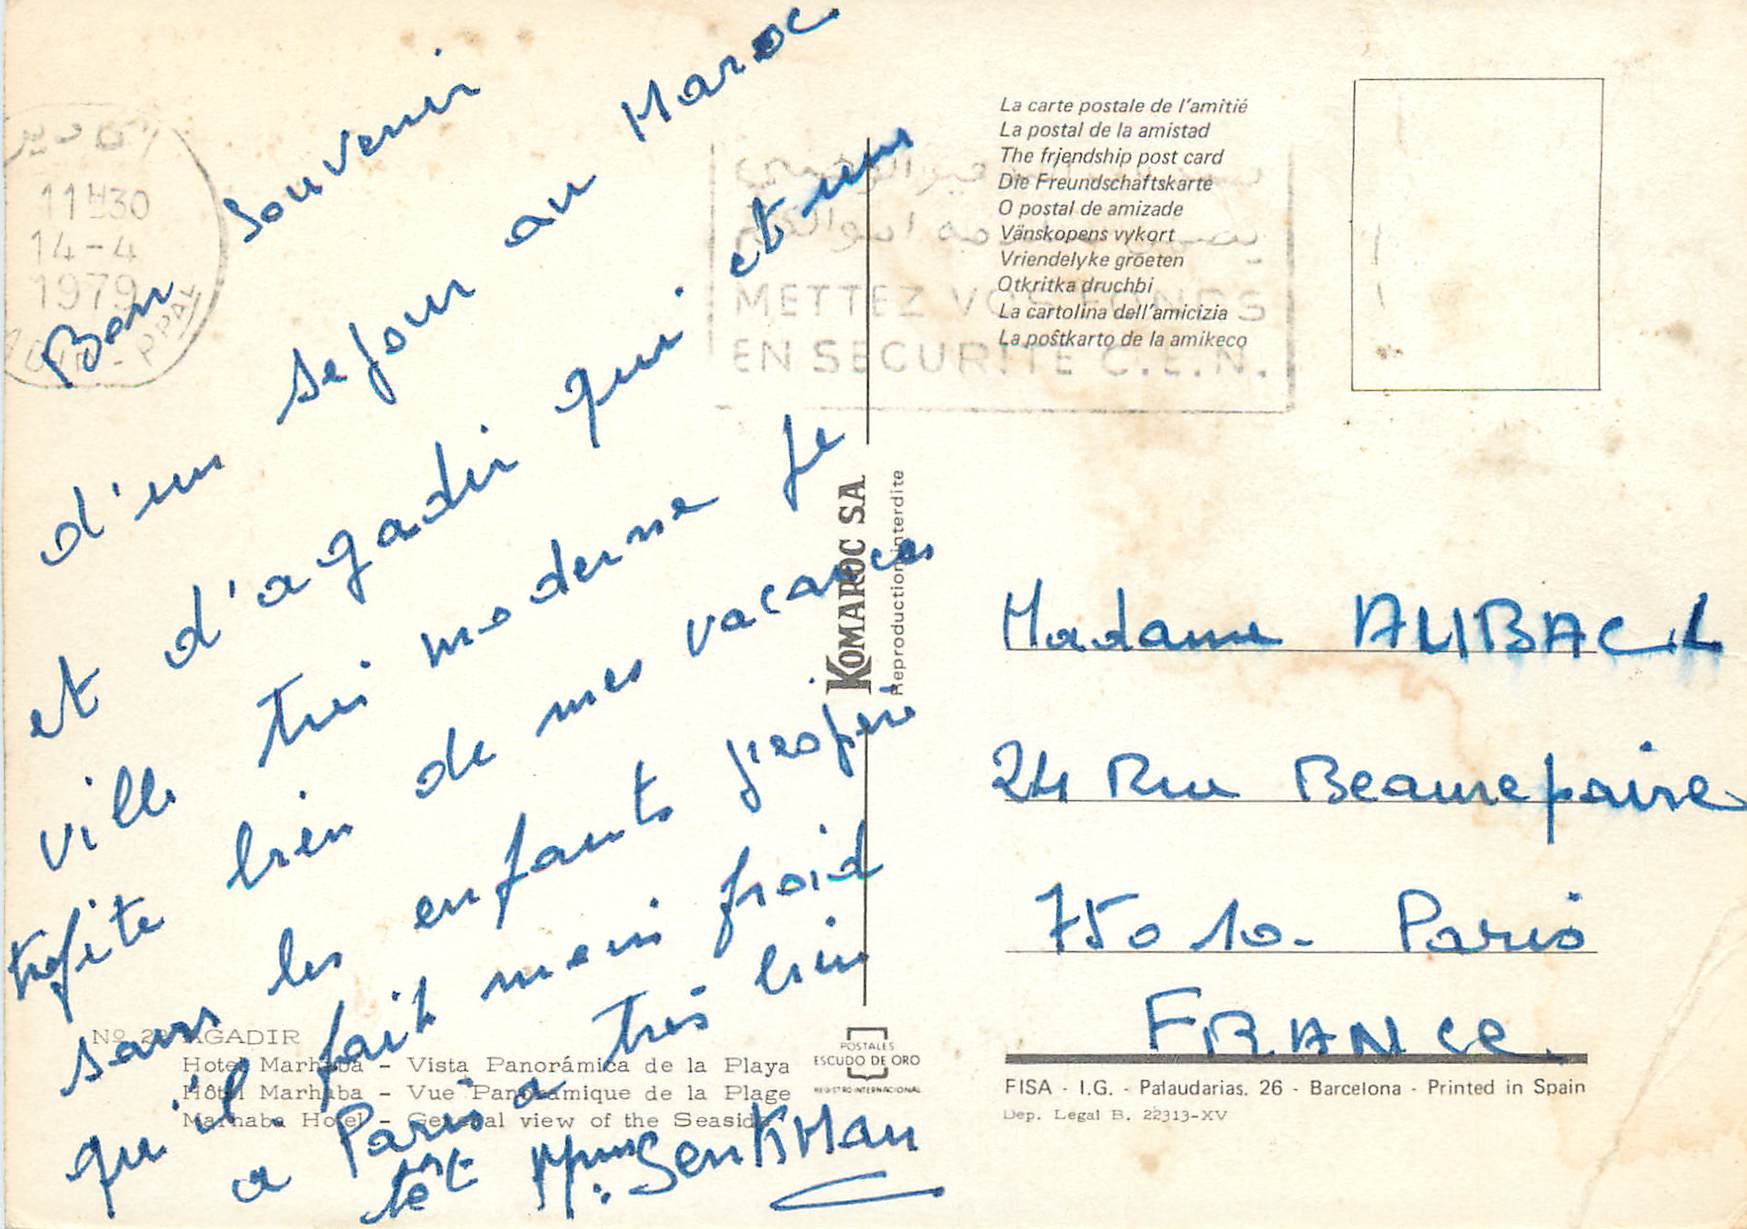 Bon souvenir
d'un sejour au Maroc
et d'agadir qui et une
ville tres moderne je
profite bien de mes vacances
sans les enfants j'espere
qu'il fait moin froid
a Paris a tres bien
tot Mme Senkman
11H30
14-4
1979
METTEZ VOS FONDS
EN SECURITE C.E.N.
La carte postale de l'amitié
La postal de la amistad
The friendship post card
Die Freundschaftskarte
O postal de amizade
Vänskopens vykort
Vriendelyke groeten
Otkritka druchbi
La cartolina dell'amicizia
La poŝtkarto de la amikeco
KOMAROC S.A
Reproduction interdite
Madame ALIBACH
24 Rue Beaurepaire
75010 - Paris
FRANCE.
Nº AGADIR
Hotel Marhaba - Vista Panorámica de la Playa
Hôtel Marhaba - Vue Panoramique de la Plage
Marhaba Hotel - General view of the Seaside
POSTALES
ESCUDO DE ORO
REGISTRO INTERNACIONAL
FISA - I.G. - Palaudarias, 26 - Barcelona - Printed in Spain
Dep. Legal B. 22313-XV